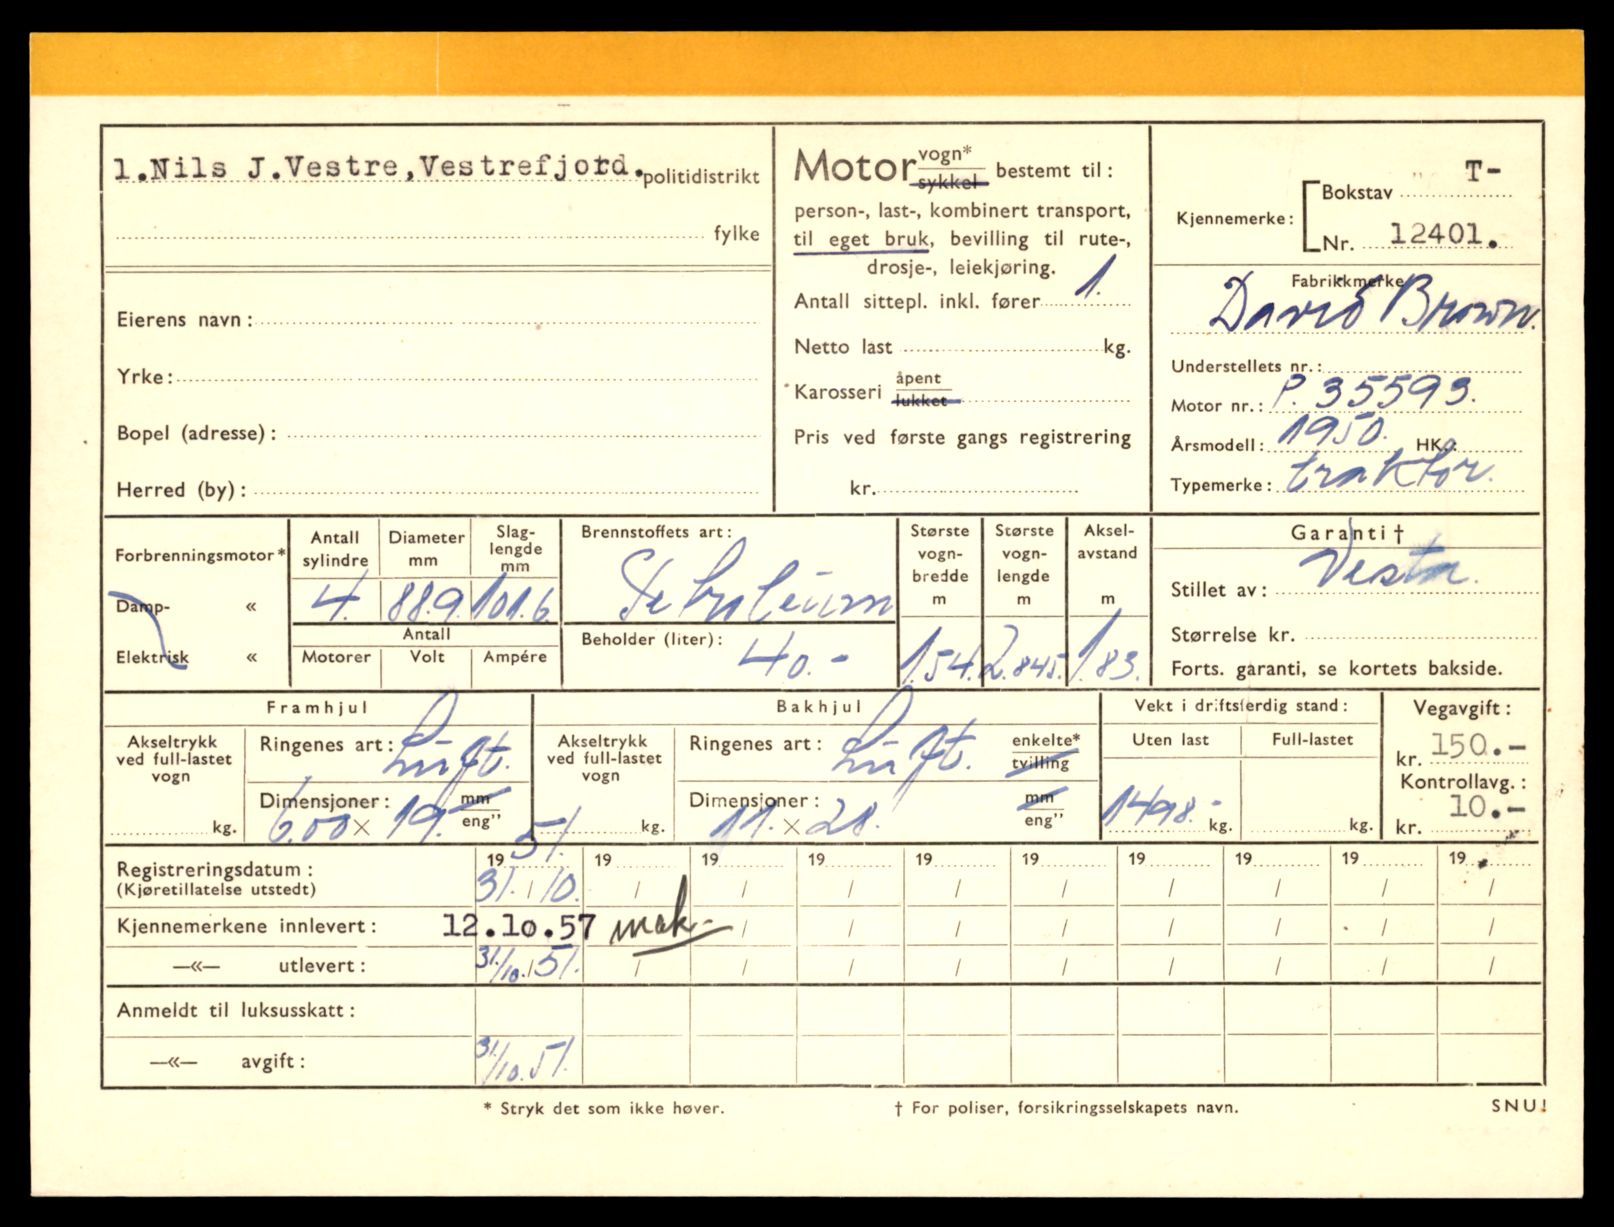 1.Nils J.Vestre,Vestrefjord. politidistrikt
fylke
Eierens navn:
Yrke:
Bopel (adresse):
Herred (by):
Motor vogn* sykkel bestemt til:
person-, last-, kombinert transport,
til eget bruk, bevilling til rute-,
drosje-, leiekjøring.
Antall sittepl. inkl. fører 1.
Netto last kg.
*Karosseri åpent lukket
Pris ved første gangs registrering
kr.
Kjennemerke: Bokstav T-
Nr. 12401.
Fabrikkmerke
David Brown.
Understellets nr.:
Motor nr.: P. 35593.
Årsmodell: 1950. HK.:
Typemerke: traktor.
Forbrenningsmotor*
Damp- «
Elektrisk «
Antall sylindre 4.
Diameter mm 88.9
Slag-lengde mm 101.6
Antall
Motorer Volt Ampére
Brennstoffets art:
Petroleum
Beholder (liter): 40.-
Største vogn-bredde m 1.54.
Største vogn-lengde m 2.845.
Aksel-avstand m 1.83.
Garanti †
Stillet av: Vesta.
Størrelse kr.
Forts. garanti, se kortets bakside.
Framhjul
Akseltrykk ved full-lastet vogn kg.
Ringenes art: Luft.
Dimensjoner: 6.00 x 19. mm eng”
Bakhjul
Akseltrykk ved full-lastet vogn kg.
Ringenes art: Luft. enkelte* tvilling
Dimensjoner: 11. x 28. mm eng”
Vekt i driftsferdig stand:
Uten last Full-lastet
1498.- kg. kg.
Vegavgift:
kr. 150.-
Kontrollavg.:
kr. 10.-
Registreringsdatum: 19 51. 19 19 19 19 19 19 19 19 19
(Kjøretillatelse utstedt) 31. / 10. / / / / / / / / /
Kjennemerkene innlevert: 12.10.57 mak- / / / / / / / /
—«— utlevert: 31/10. 51. / / / / / / / / /
Anmeldt til luksusskatt:
—«— avgift: 31/10. 51.
* Stryk det som ikke høver.
† For poliser, forsikringsselskapets navn.
SNU!